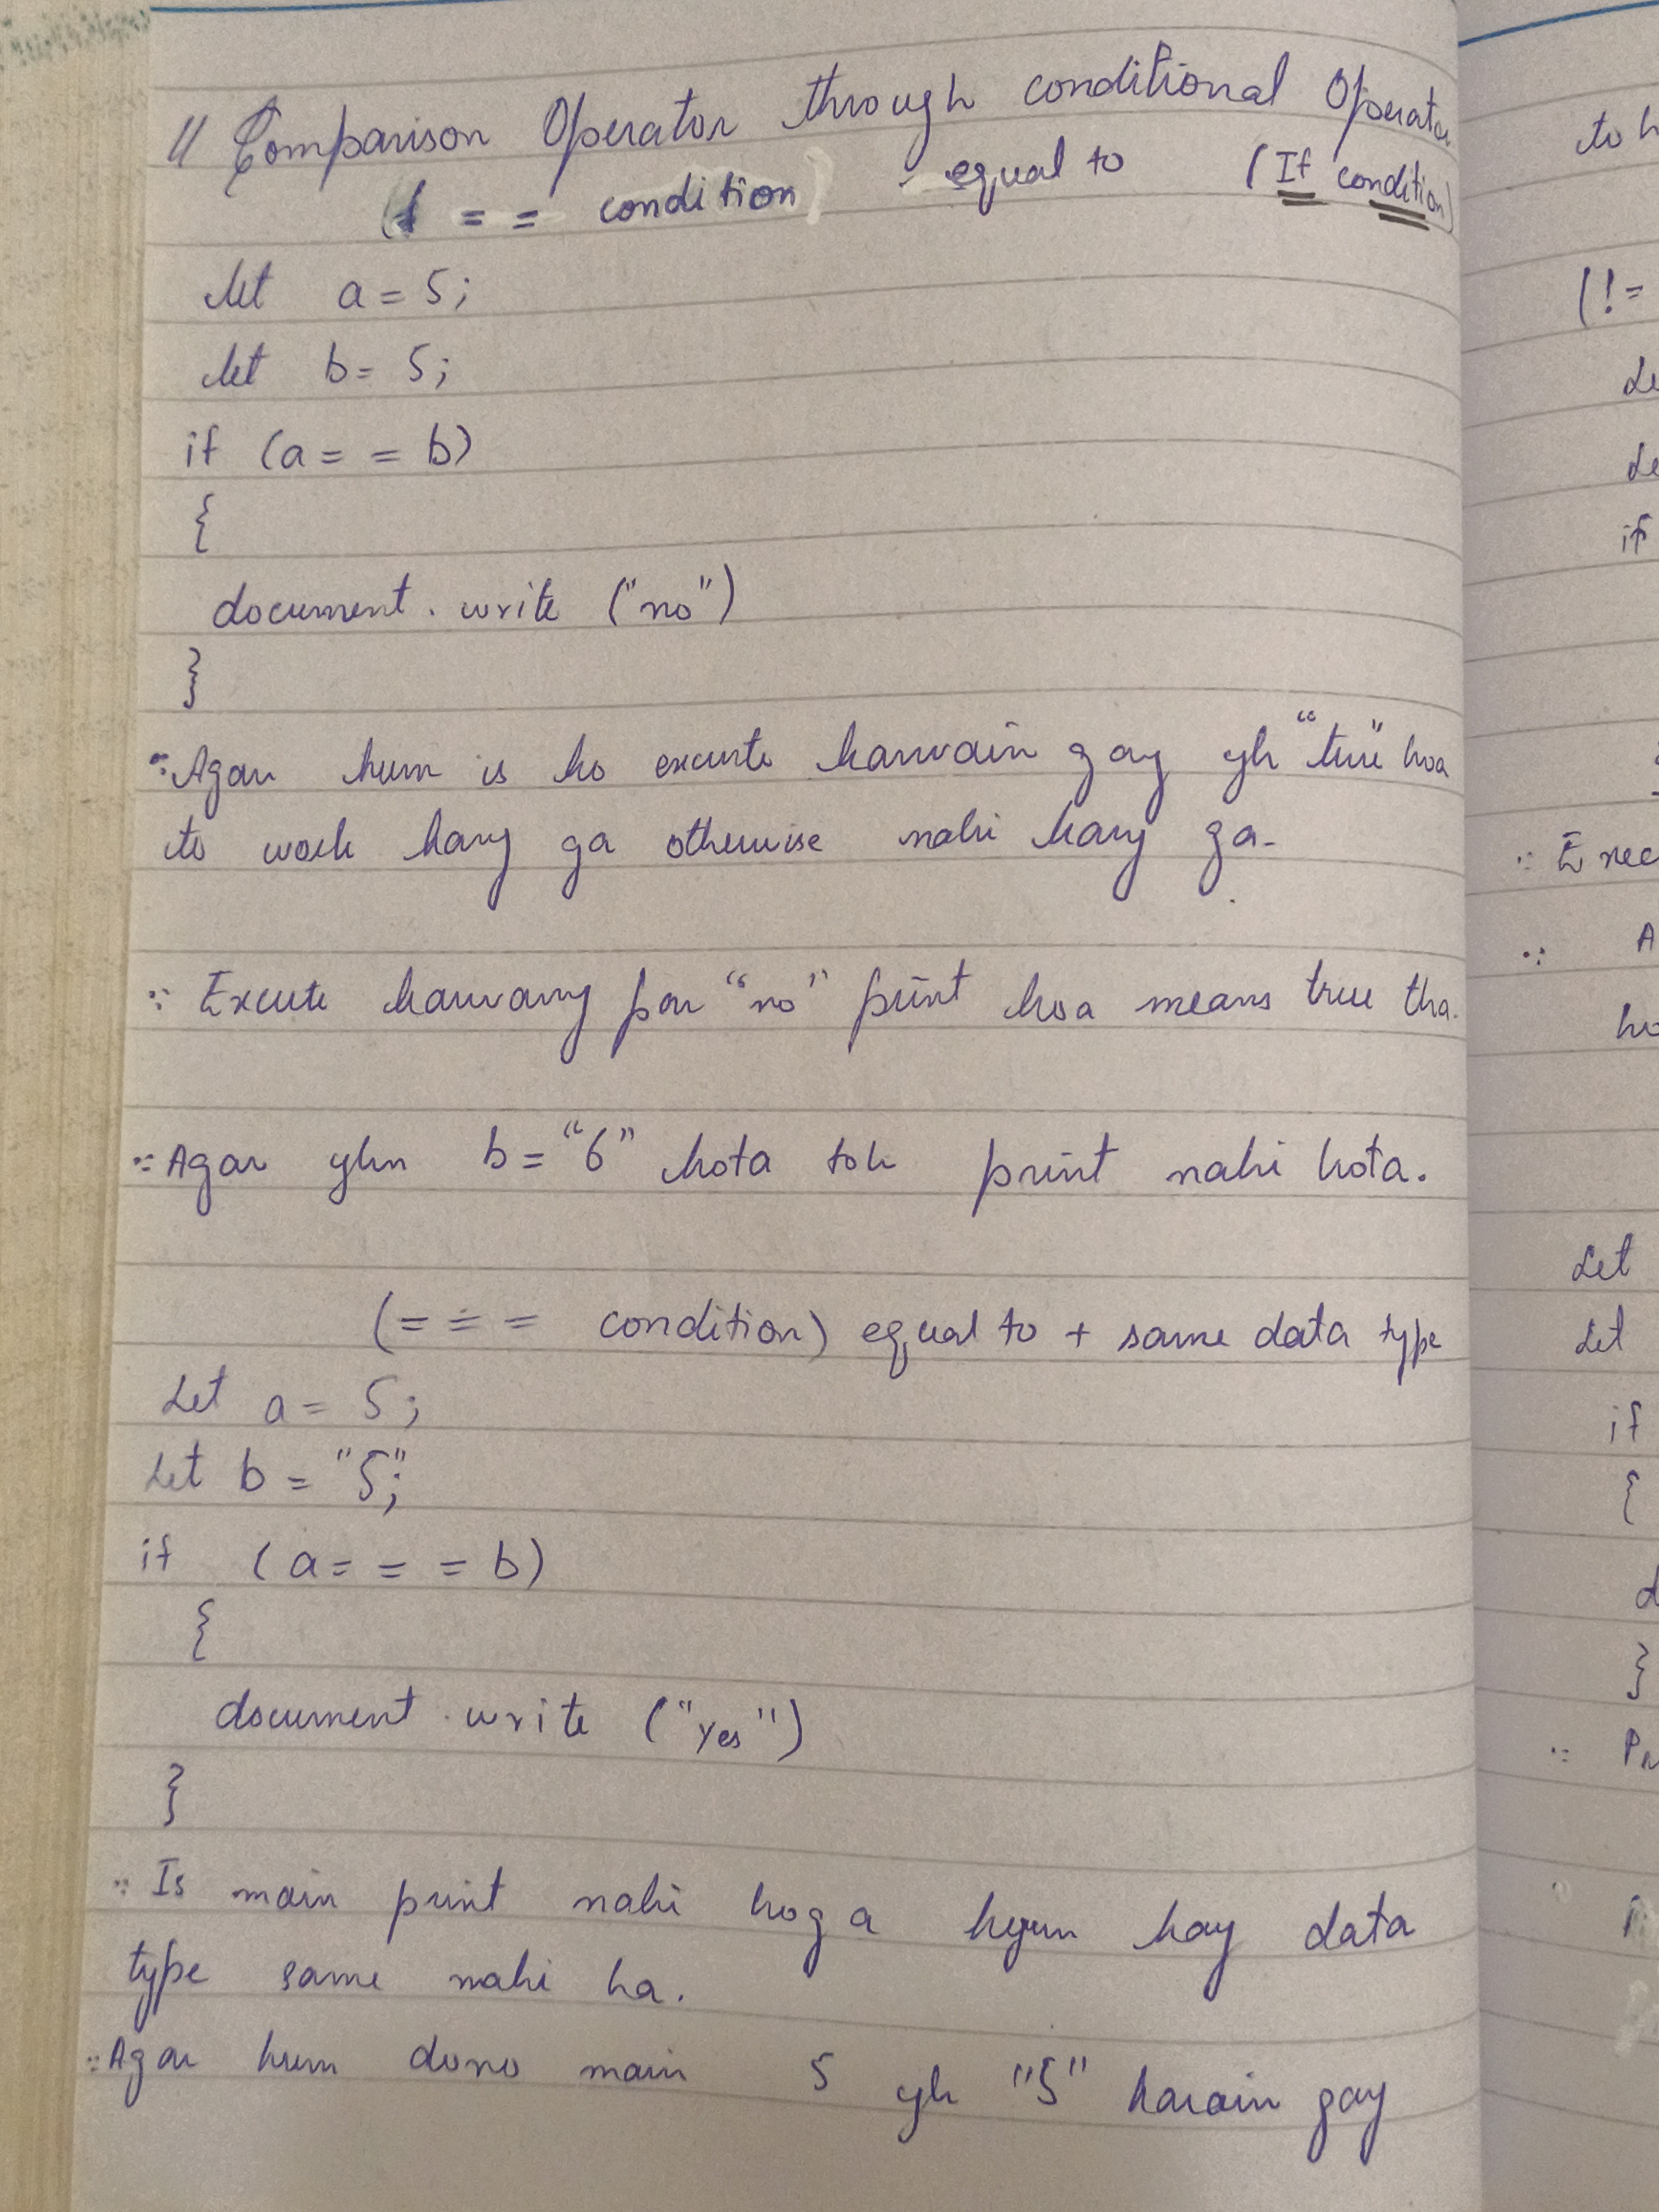 // Comparison Operator through conditional Operator
( = = condition) - equal to (If condition)
let a = 5;
let b = 5;
if (a = = b)
{
document.write ("no")
}
∵ Agar hum is ko excute karwain gay yh "true" hoa
to work kary ga otherwise nahi kary ga.
∵ Excute karwany par "no" print hoa means true tha.
∵ Agar yhn b = "6" hota toh print nahi hota.
(= = = condition) equal to + same data type
Let a = 5;
Let b = "5";
if (a = = = b)
{
document.write ("Yes")
}
∵ Is main print nahi hoga kyun kay data
type same nahi ha.
∵ Agar hum dono main 5 yh "5" karain gay
to
(!=
if
∵
∵ A
Let
Let
if
{
d
}
∵